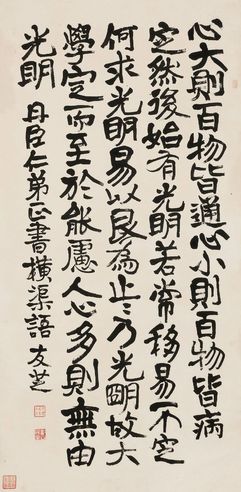 心大則百物皆通心小則百物皆病
定然後始有光明若常移易不定
何求光明易以艮為止止乃光明故大
學定而至於能慮人心多則無由
光明 丹臣仁弟正書橫渠語 友芝